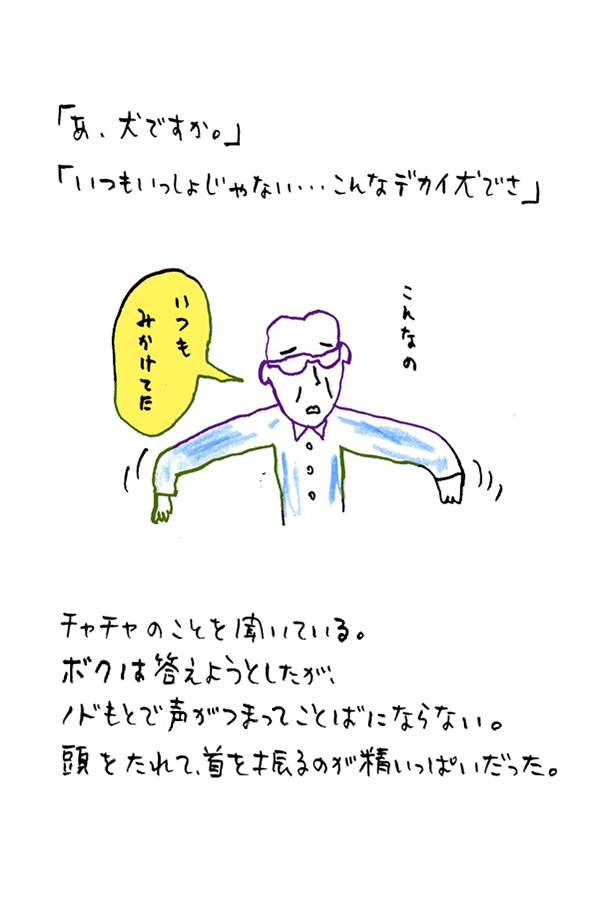 「あ、犬ですか。」
「いつもいっしょじゃない・・・こんなデカイ犬でさ」
こんなの
いつも
みかけてた
チャチャのことを聞いている。
ボクは答えようとしたが、
ノドもとで声がつまってことばにならない。
頭をたれて、首を振るのが精いっぱいだった。